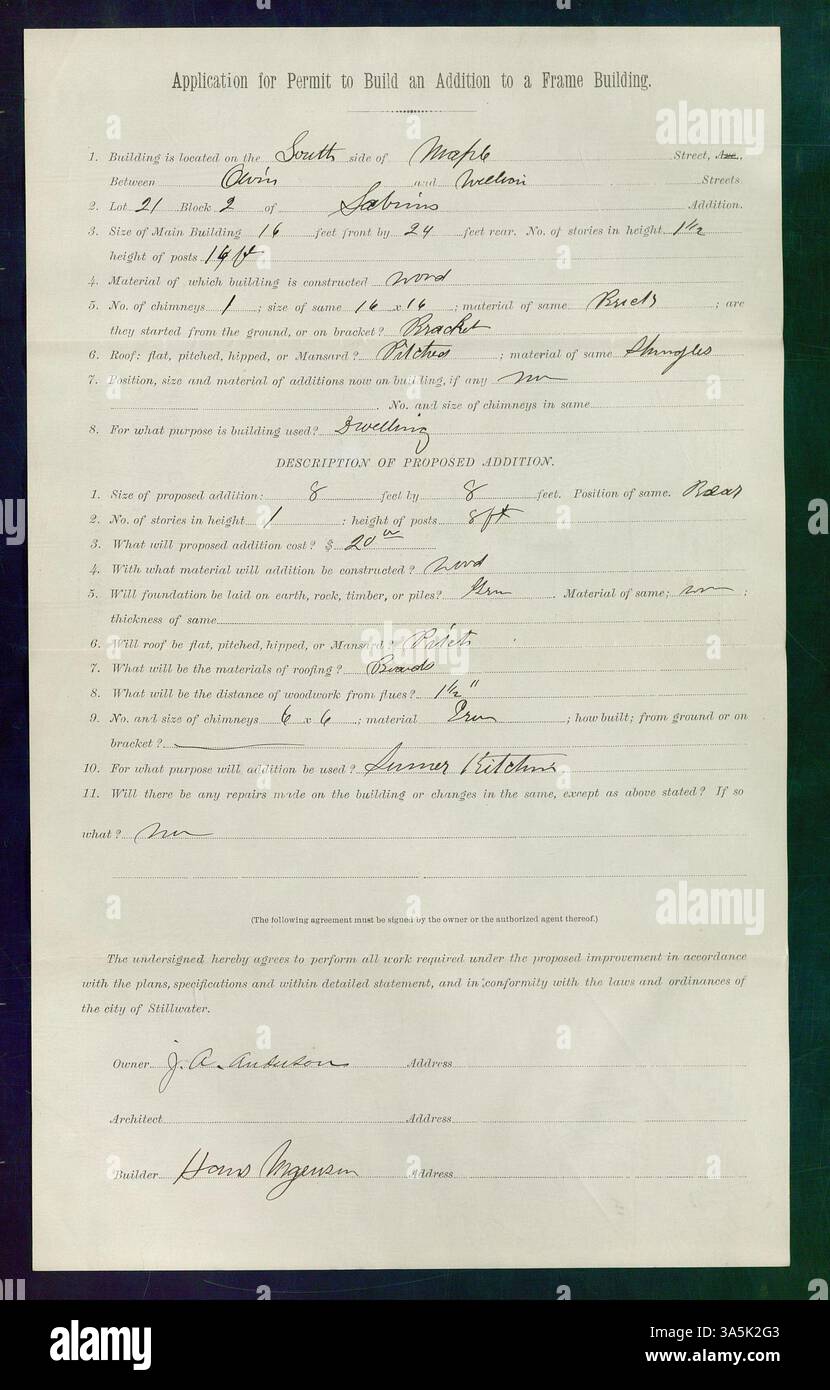 Application for Permit to Build an Addition to a Frame Building.
1. Building is located on the South side of Maple Street, Ave.,
Between Owin and Streets
2. Lot 21 Block 2 of Sabins Addition.
3. Size of Main Building 16 feet front by 24 feet rear. No. of stories in height 1 1/2
height of posts 14 ft
4. Material of which building is constructed wood
5. No. of chimneys 1; size of same 16 x 16; material of same Brick; are
they started from the ground, or on bracket? Bracket
6. Roof: flat, pitched, hipped, or Mansard? Pitched; material of same Shingles
7. Position, size and material of additions now on building, if any
No. and size of chimneys in same
8. For what purpose is building used? Dwelling
DESCRIPTION OF PROPOSED ADDITION.
1. Size of proposed addition: 8 feet by 8 feet. Position of same. Rear
2. No. of stories in height 1; height of posts 8ft
3. What will proposed addition cost? $ 20 00
4. With what material will addition be constructed? wood
5. Will foundation be laid on earth, rock, timber, or piles? Material of same; ;
thickness of same
6. Will roof be flat, pitched, hipped, or Mansard? Pitch
7. What will be the materials of roofing? Boards
8. What will be the distance of woodwork from flues? 1 1/2"
9. No. and size of chimneys 6 x 6; material Iron; how built; from ground or on
bracket?
10. For what purpose will addition be used? Sumer Kitchen
11. Will there be any repairs made on the building or changes in the same, except as above stated? If so
what?
(The following agreement must be signed by the owner or the authorized agent thereof.)
The undersigned hereby agrees to perform all work required under the proposed improvement in accordance
with the plans, specifications and within detailed statement, and in conformity with the laws and ordinances of
the city of Stillwater.
Owner J. A. Anderson Address
Architect Address
Builder Hans Address
alamy
Image ID: 3A5K2G3
www.alamy.com